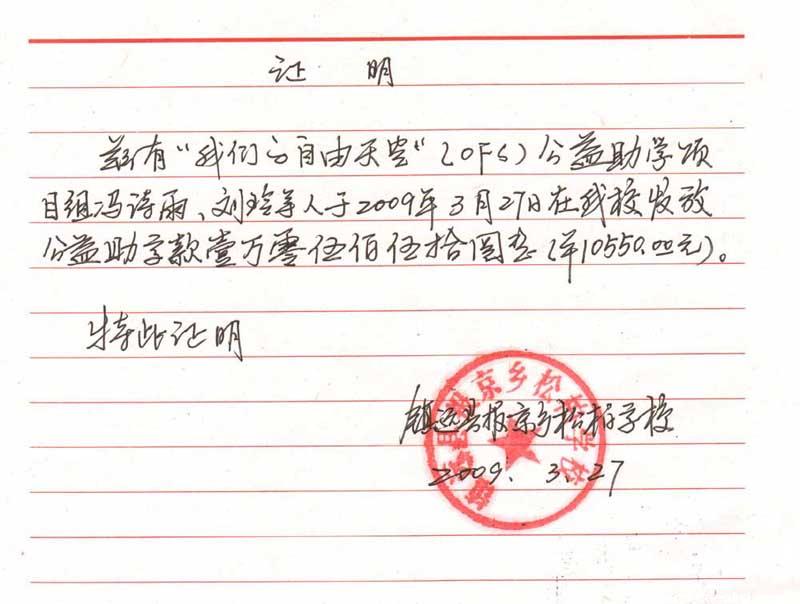 证 明
兹有“我们的自由天空”（OFS）公益助学项
目组冯诗雨、刘玲等人于2009年3月27日在我校发放
公益助学款壹万零伍佰伍拾圆整（¥10550.00元）。
特此证明
镇远县报京乡松柏学校
2009. 3. 27
镇远县报京乡松柏学校